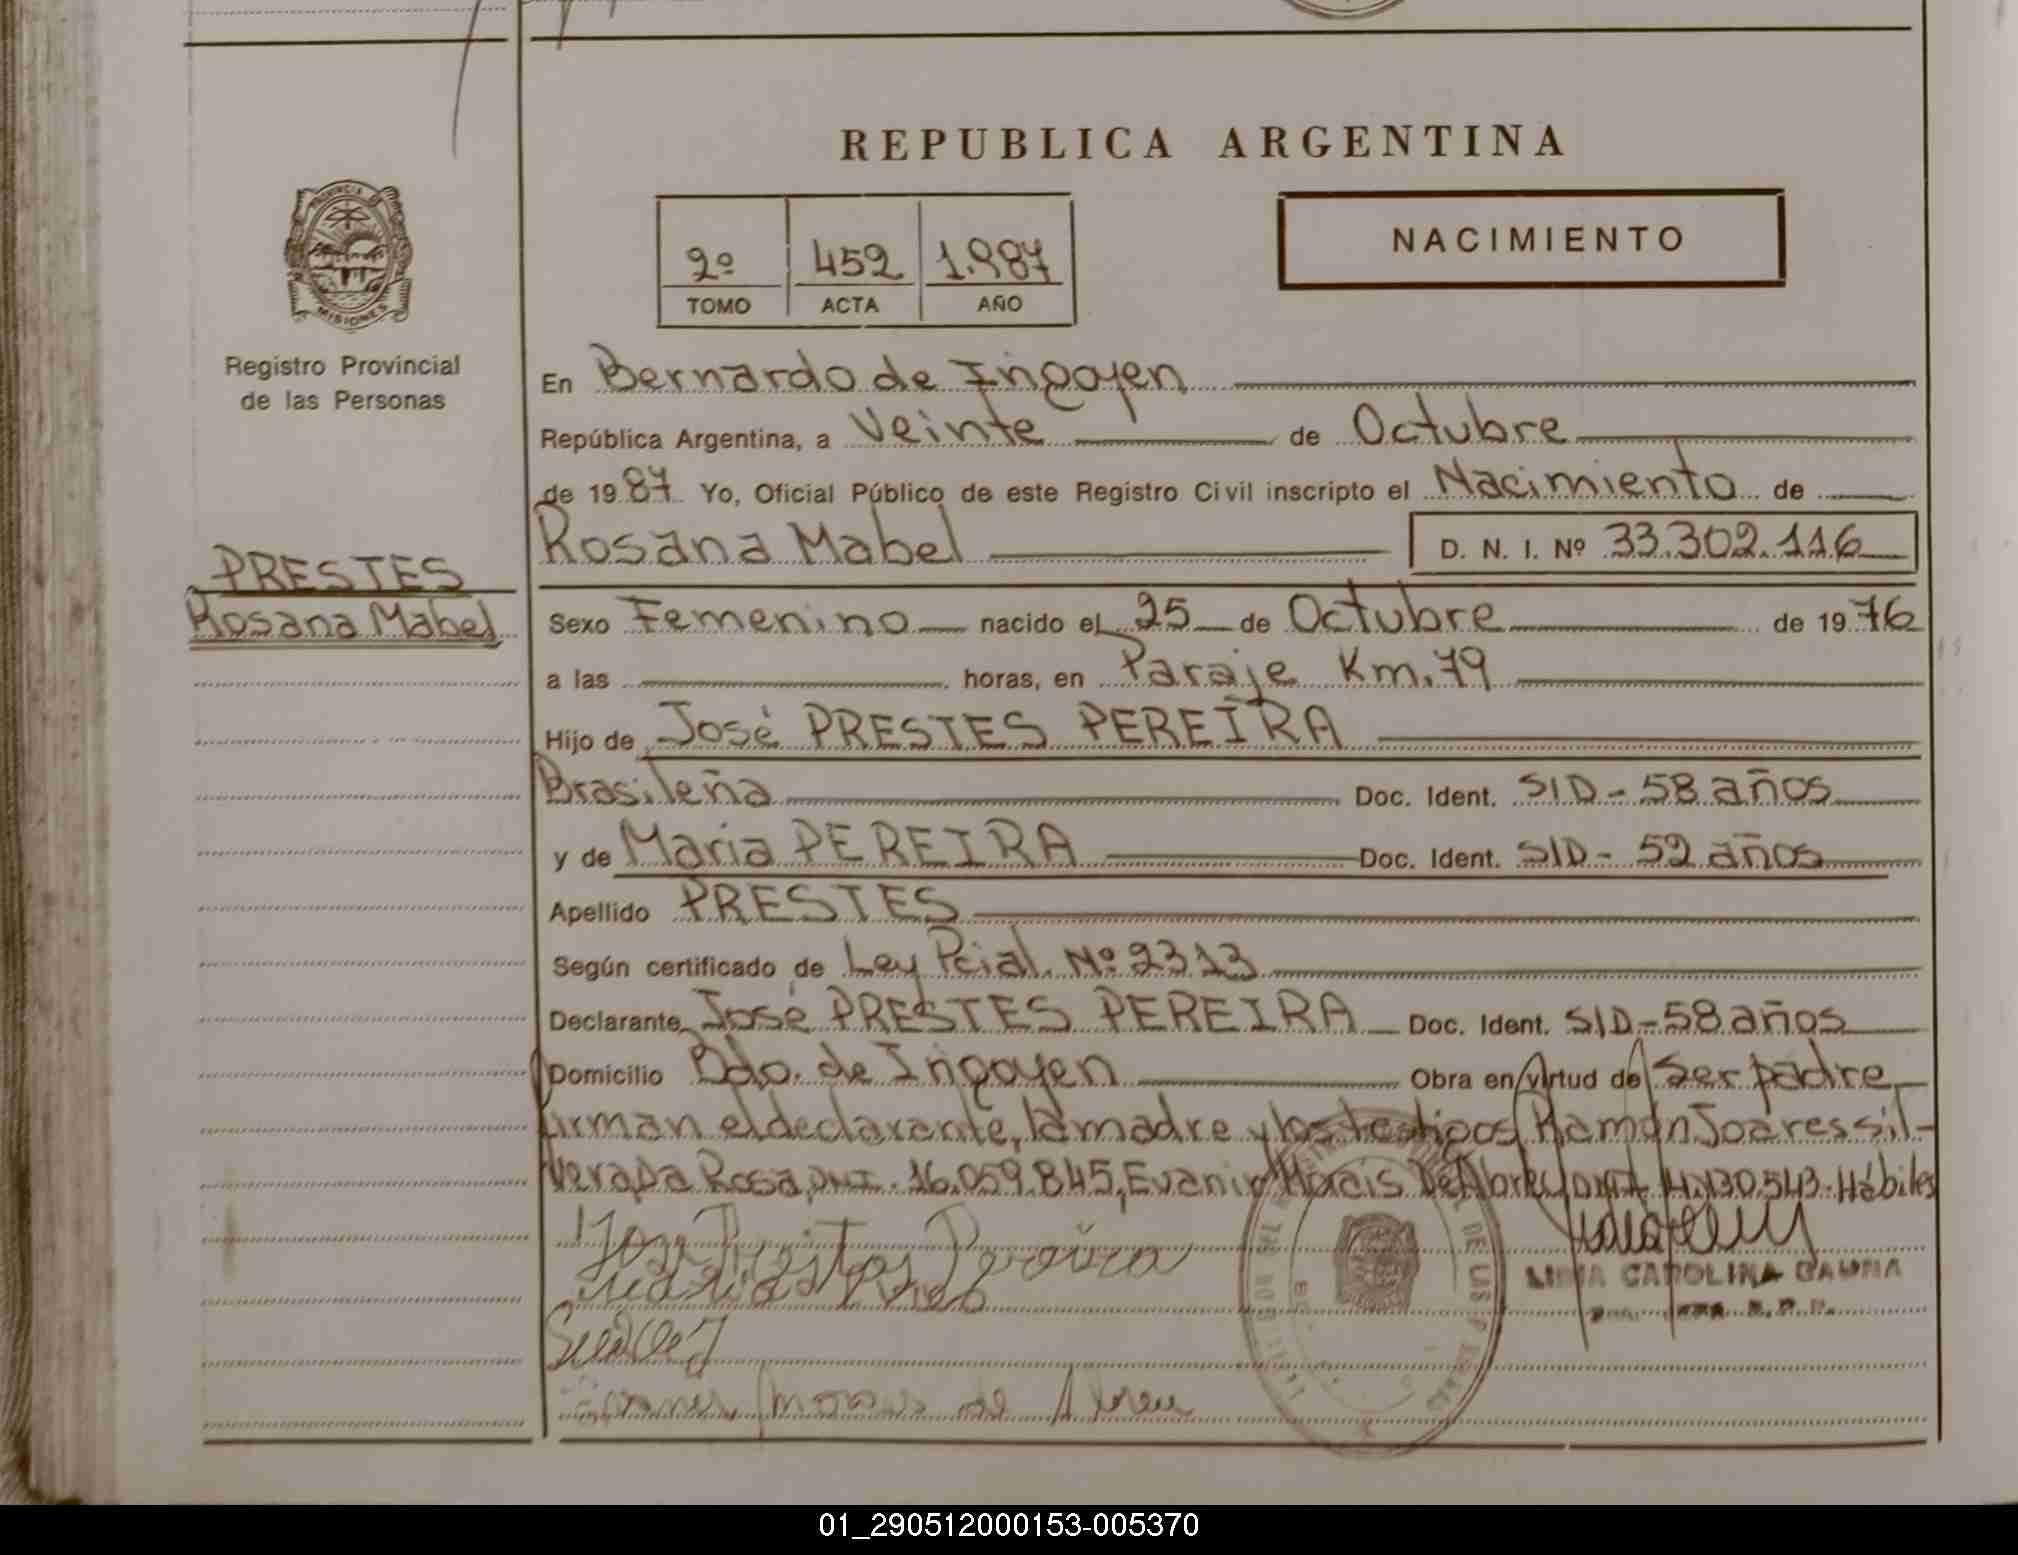 REPUBLICA ARGENTINA
2º 452 1.987
TOMO ACTA AÑO
NACIMIENTO
PROVINCIA
MISIONES
Registro Provincial
de las Personas
PRESTES
Rosana Mabel
En Bernardo de Irigoyen
República Argentina, a Veinte de Octubre
de 1987 Yo, Oficial Público de este Registro Civil inscripto el Nacimiento de
Rosana Mabel D. N. I. Nº 33.302.116
Sexo Femenino nacido el 25 de Octubre de 1976
a las horas, en Paraje Km. 79
Hijo de José PRESTES PEREIRA
Brasileña Doc. Ident. SID - 58 años
y de Maria PEREIRA Doc. Ident. SID - 52 años
Apellido PRESTES
Según certificado de Ley Pcial. Nº 2313
Declarante José PRESTES PEREIRA Doc. Ident. SID - 58 años
Domicilio Bdo. de Irigoyen Obra en virtud de Ser padre
firman el declarante, la madre y los testigos Ramón Joares Sil-
vera Da Rosa, DNI. 16.059.845, Evanir Morais De Abreu DNI Hábiles
Prestes Pereira
morais de Abreu
CAROLINA GAUNA
01_290512000153-005370